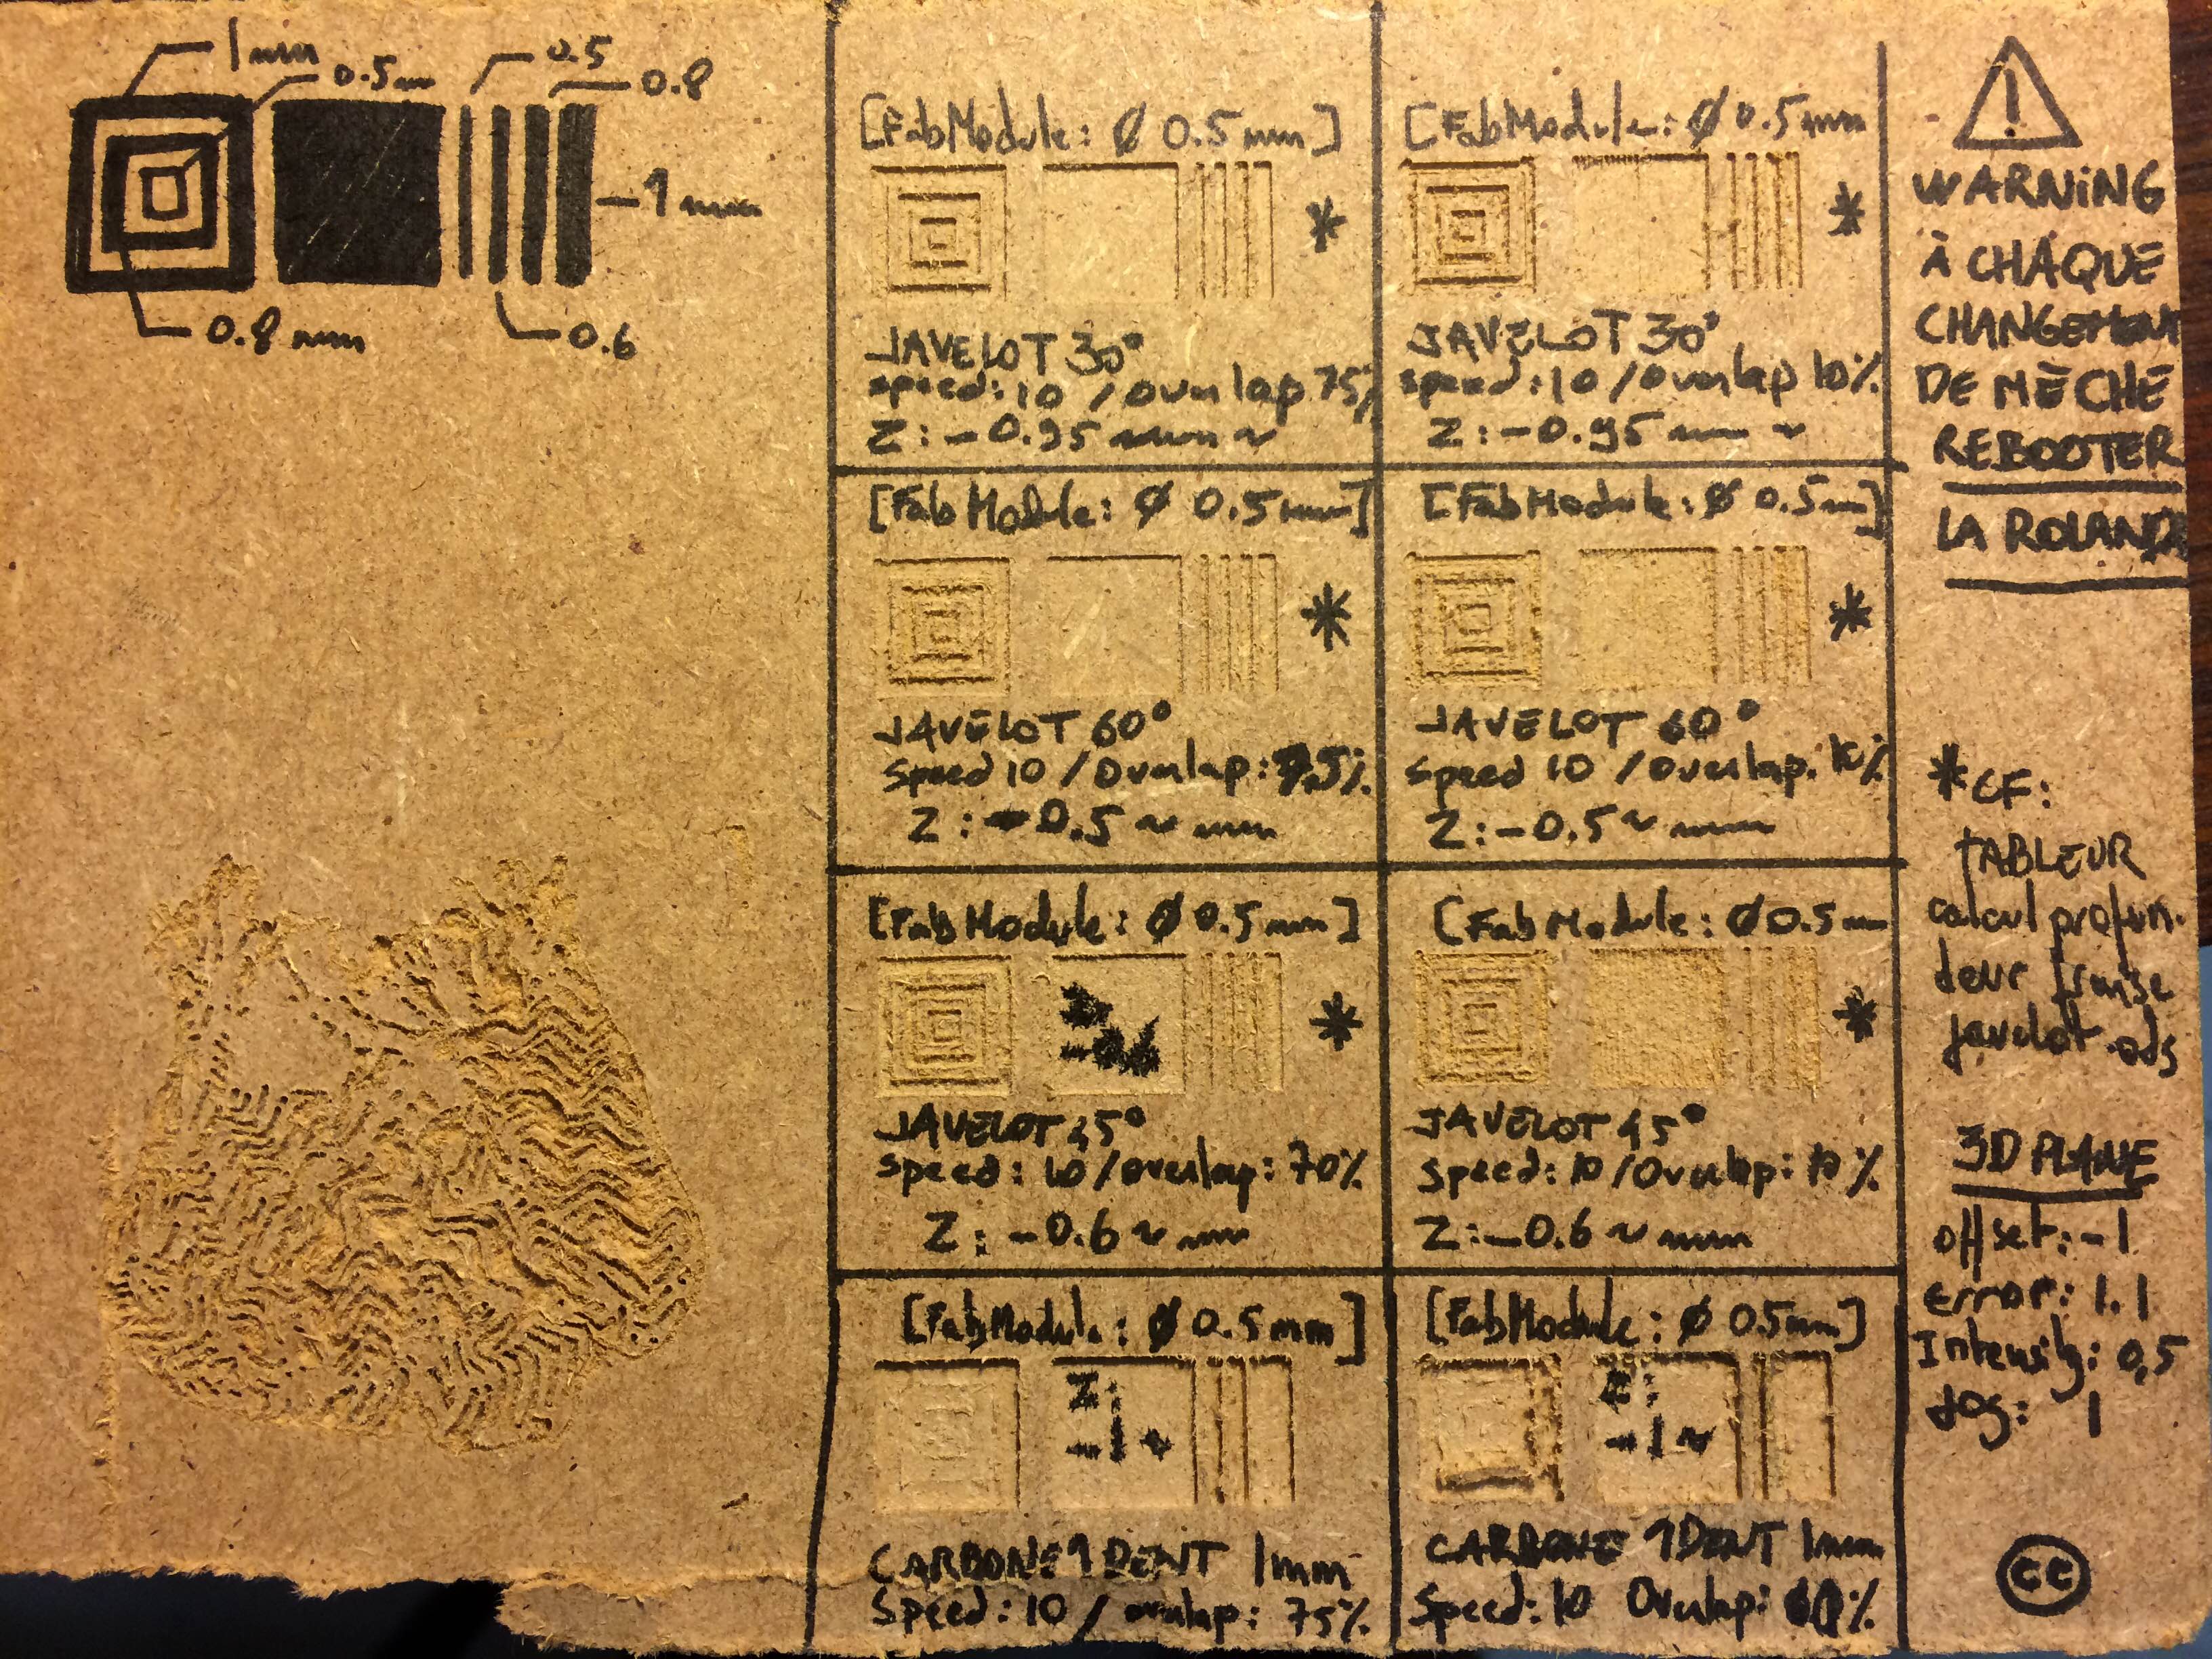 1mm
0.5m
0.5
0.8
-1mm
0.8 mm
0.6
[FabModule: Ø 0.5mm]
*
JAVELOT 30°
speed: 10 / Overlap 75%
Z: -0.95 mm ~
[FabModule: Ø 0.5mm
*
JAVELOT 30°
speed: 10 / Overlap 10%
Z: -0.95 mm ~
[FabModule: Ø 0.5mm]
*
JAVELOT 60°
Speed 10 / Overlap:
Z: -0.5 ~ mm
[FabModule: Ø 0.5m]
*
JAVELOT 60°
Speed 10 / Overlap: 10%
Z: -0.5 ~ mm
[FabModule: Ø 0.5mm]
*
JAVELOT 45°
Speed: 10 / Overlap: 70%
Z: -0.6 ~ mm
[FabModule: Ø 0.5m
*
JAVELOT 45°
Speed: 10 / Overlap: 10%
Z: -0.6 ~ mm
[FabModule: Ø 0.5mm]
Z:
-1 ~
CARBONE 1DENT 1mm
Speed: 10 / overlap: 75%
[FabModule: Ø 0.5mm]
Z:
-1 ~
CARBONE 1DENT 1mm
Speed: 10 Overlap:
!
WARNING
À CHAQUE
CHANGEMENT
DE MÈCHE
REBOOTER
LA ROLAND
* CF:
TABLEUR
calcul profon-
deur fraise
javelot.ods
3D PLANE
offset: -1
error: 1.1
Intensity: 0,5
jog: 1
cc